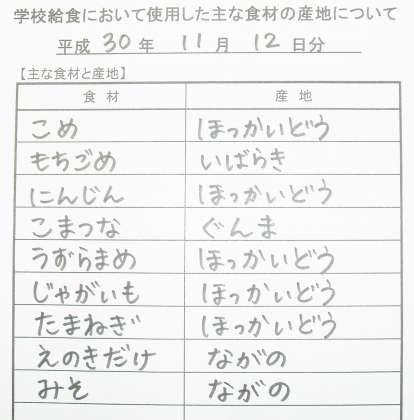 学校給食において使用した主な食材の産地について
平成 30 年 11 月 12 日分
【主な食材と産地】
食材 産地
こめ ほっかいどう
もちごめ いばらき
にんじん ほっかいどう
こまつな ぐんま
うずらまめ ほっかいどう
じゃがいも ほっかいどう
たまねぎ ほっかいどう
えのきだけ ながの
みそ ながの